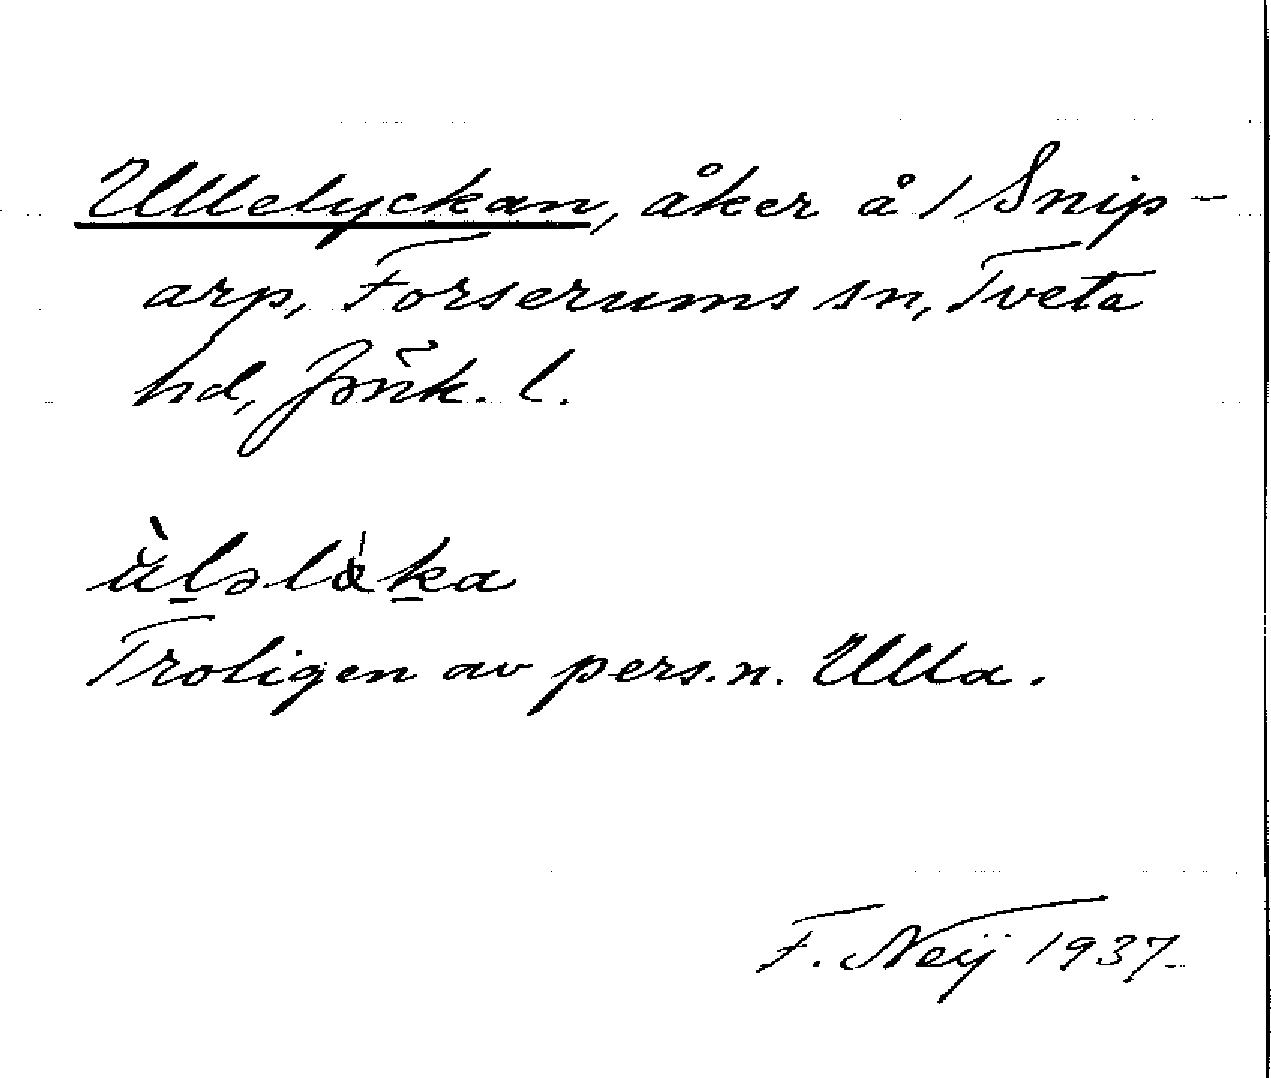 Ullelyckan, åker å 1 Snip-
arp, Forserums sn, Tveta
hd, Jönk. l.
Troligen av pers.n. Ulla.
F. Neij 1937